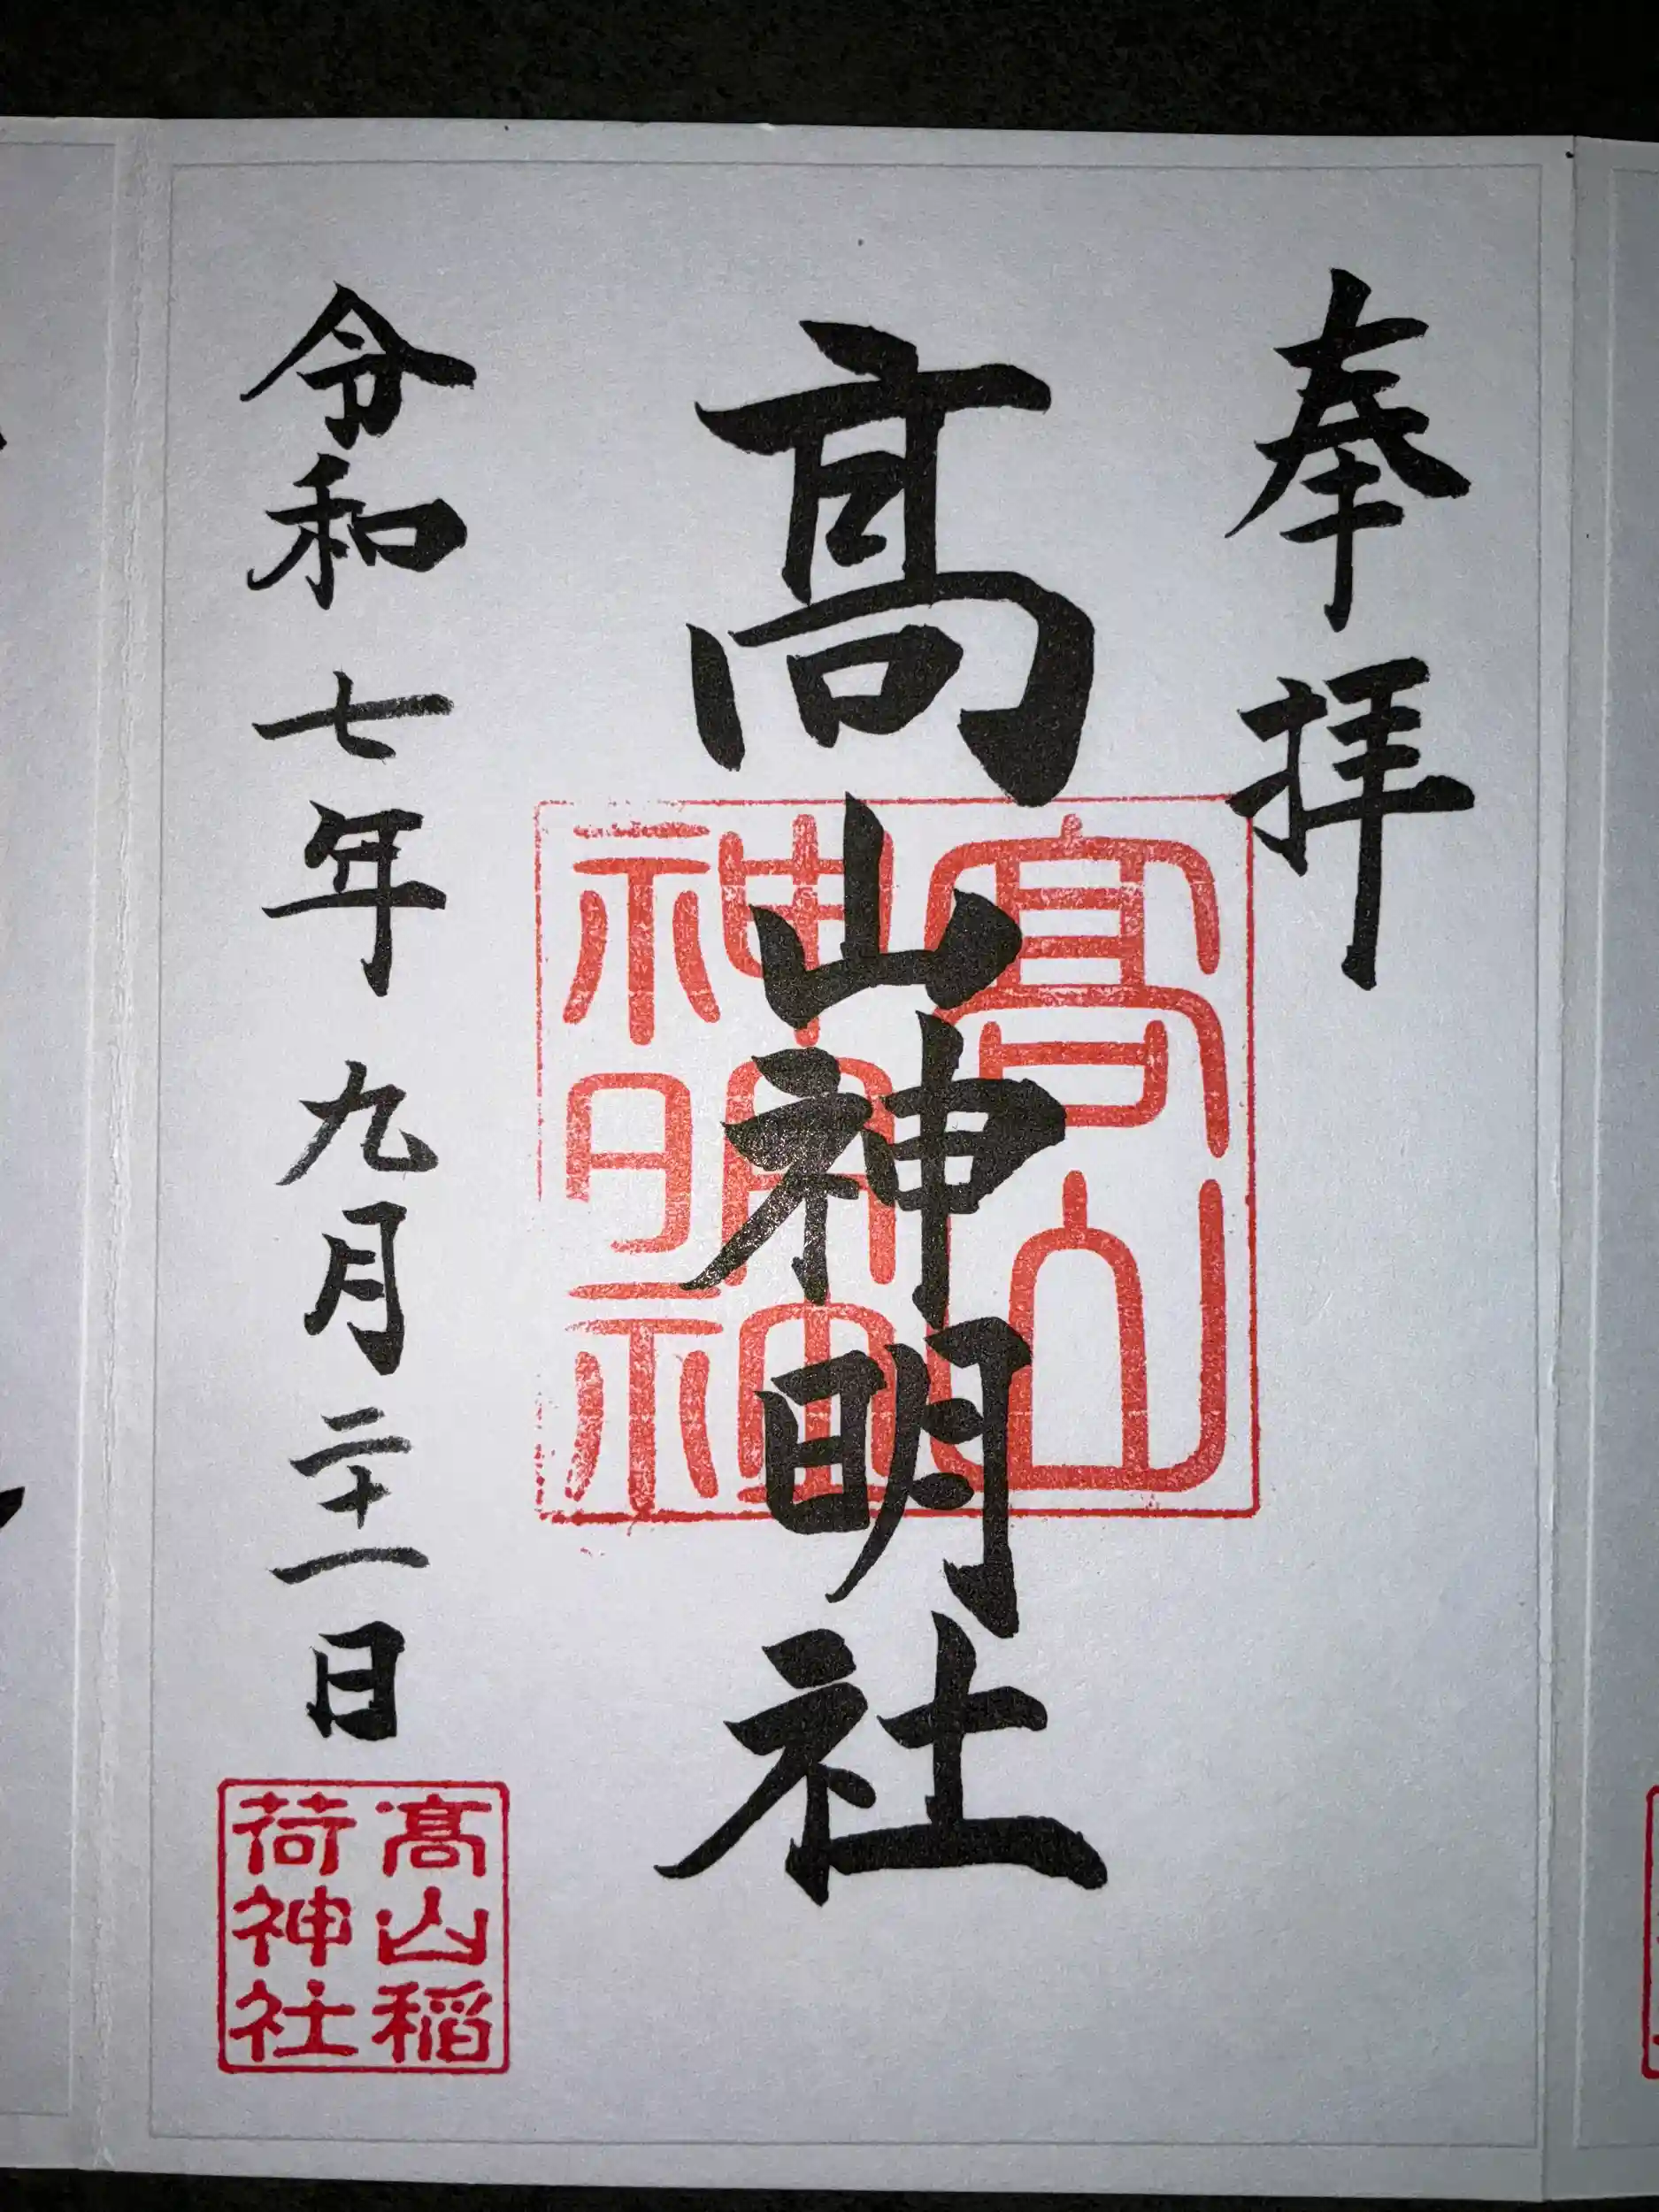 奉拝
髙山神明社
髙山
神明神
令和七年九月二十一日
髙山稲
荷神社